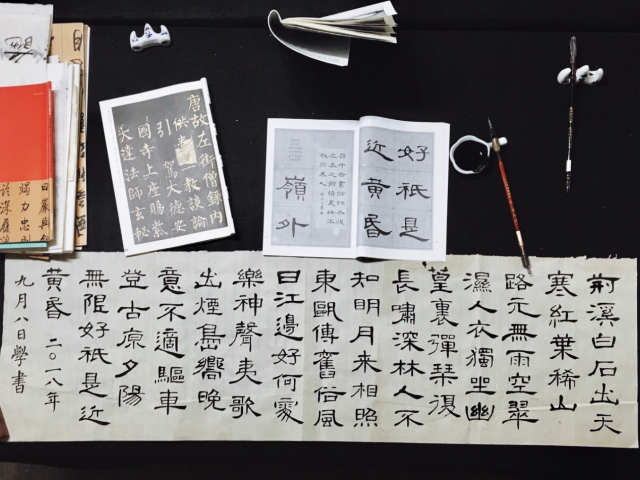 唐故左街僧錄內
供奉三教談論
引駕大德安
國寺上座賜紫
大達法師玄秘
好祇是
近黃昏
嶺外
竭力忠則
荆溪白石出天
寒紅葉稀山
路元無雨空翠
濕人衣獨坐幽
篁裏彈琴復
長嘯深林人不
知明月來相照
東甌傳舊俗風
日江邊好何處
樂神聲夷歌
出煙島嚮晚
意不適驅車
登古原夕陽
無限好祇是近
黃昏 二〇一八年
九月八日學書